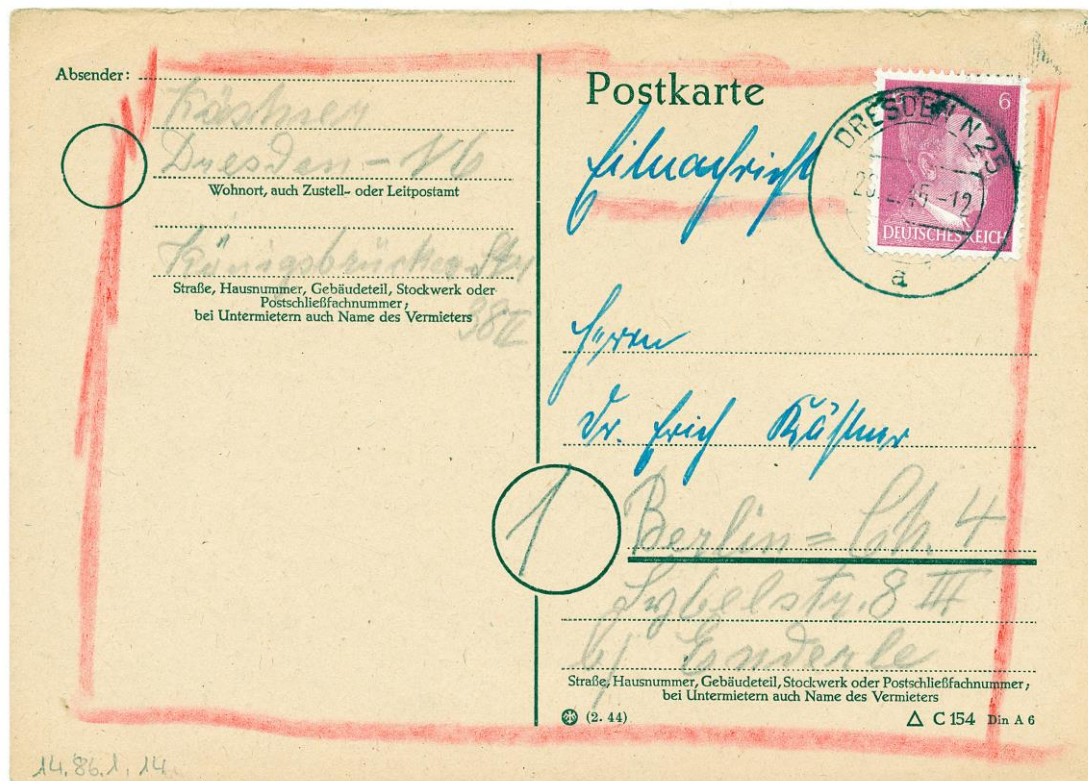 Absender:
Kästner
Dresden-N6
Wohnort, auch Zustell- oder Leitpostamt
Königsbrücker Str.
Straße, Hausnummer, Gebäudeteil, Stockwerk oder
Postschließfachnummer;
bei Untermietern auch Name des Vermieters
38 II
Postkarte
Eilnachricht
6
DEUTSCHES REICH
DRESDEN N 25
.45-12
a
Herrn
Dr. Erich Kästner
1
Berlin=Ch. 4
Sybelstr. 8 III
b/ Enderle
Straße, Hausnummer, Gebäudeteil, Stockwerk oder Postschließfachnummer;
bei Untermietern auch Name des Vermieters
(2. 44)
C 154 Din A 6
14.86.1.14.